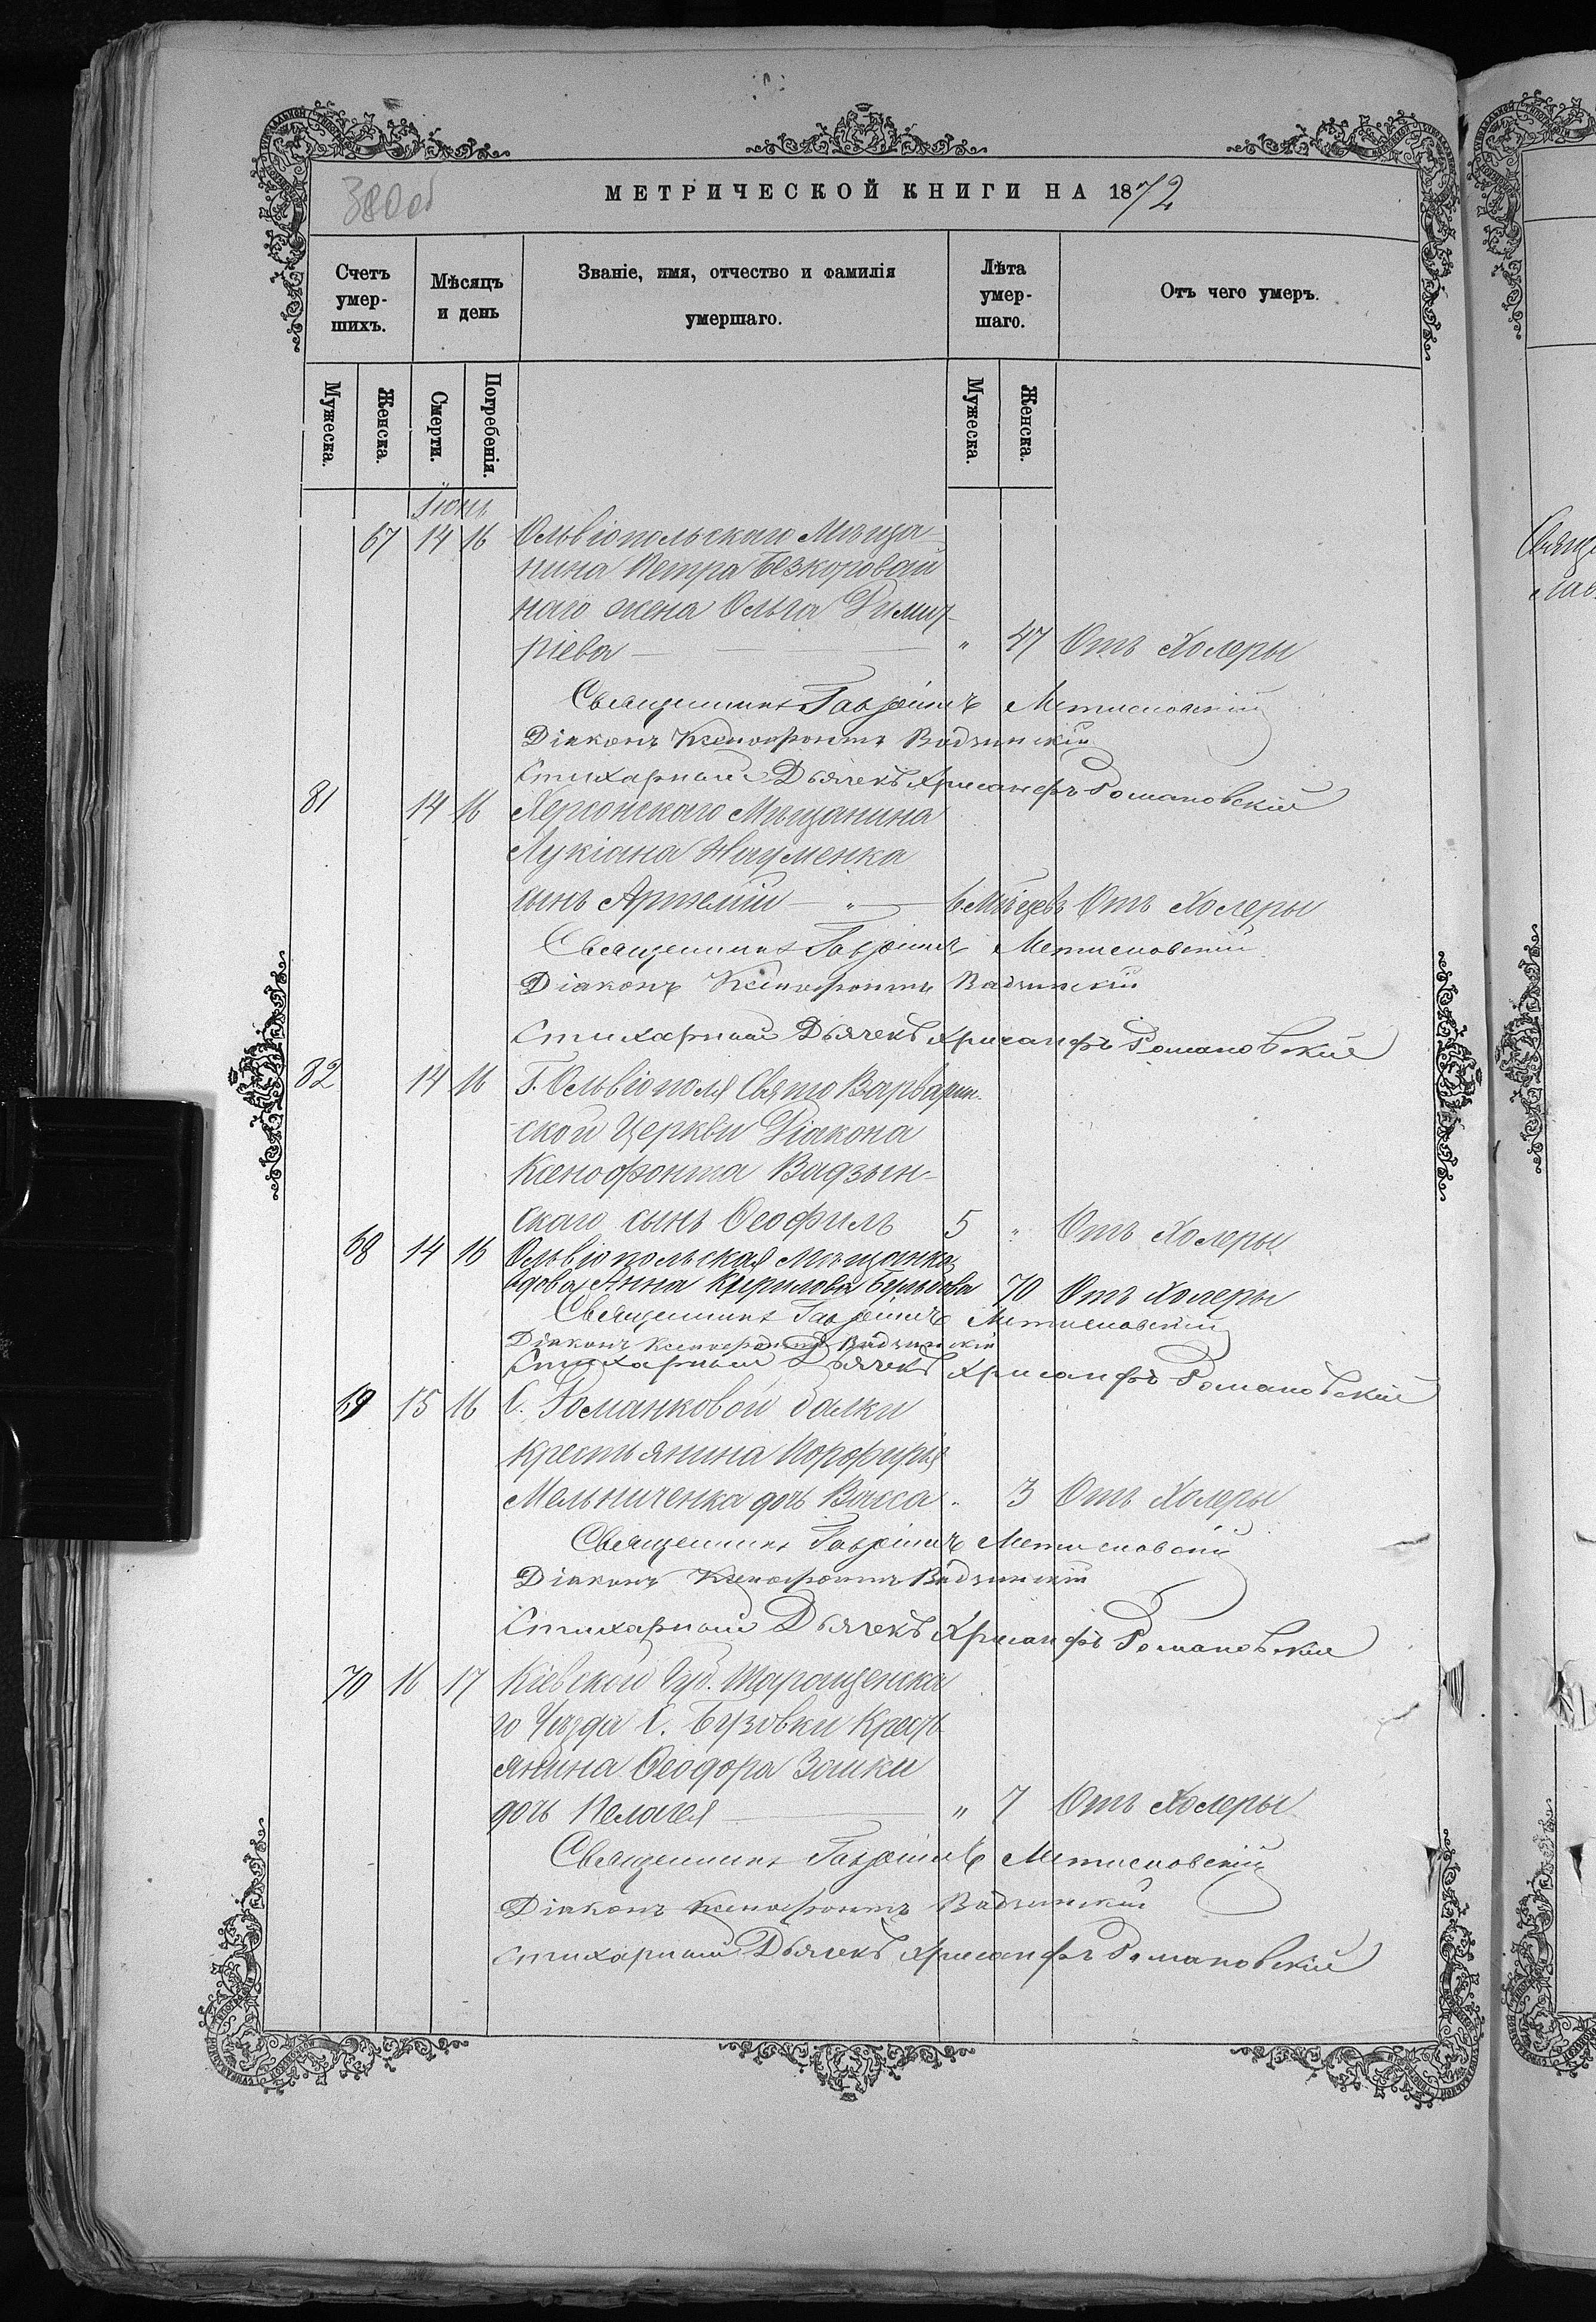 380об
МЕТРИЧЕСКОЙ КНИГИ НА 1872
Счетъ умер-шихъ.
Мѣсяцъ и день
Званіе, имя, отчество и фамилія умершаго.
Лѣта умер-шаго.
Отъ чего умеръ.
Мужеска. Женска. Смерти. Погребенія. Мужеска. Женска.
Іюнь
67 14 16 Ольвіопольскаго Мѣща
нина Петра Безкоровай
наго жена Ольга Димит-
ріева — " 47 Отъ Холеры
Священникъ Гавріилъ
Діаконъ Ксенофонтъ Вадзинскій
Стихарный Дьячекъ Хрисанфъ Романовскій
81 14 16 Херсонскаго Мѣщанина
Лукіана Науменка
сынъ Артемій — " — 6 Мѣсцевъ Отъ Холеры
Священникъ Гавріилъ
Діаконъ Ксенофонтъ Вадзинскій
Стихарный Дьячекъ Хрисанфъ Романовскій
82 14 16 Г. Ольвіополя Свято Варварин-
-ской Церкви Діакона
Ксенофонта Вадзын-
скаго сынъ Ѳеофилъ 5 " Отъ Холеры
68 14 16 Ольвіопольская Мѣщанка
вдова Анна Кирилова 70 Отъ Холеры
Священникъ Гавріилъ
Діаконъ Ксенофонтъ Вадзинскій
Стихарный Дьячекъ Хрисанфъ Романовскій
69 15 16 С. Романковой балки
крестьянина Порфирія
Мельниченка дочь Васса " 3 Отъ Холеры
Священникъ Гавріилъ
Діаконъ Ксенофонтъ Вадзинскій
Стихарный Дьячекъ Хрисанфъ Романовскій
70 16 17 Кіевской Губ. Таращенска
го Уѣзда С. Бузовки Кресть
янина Ѳеодора Зашки
дочь Пелагея — " 7 Отъ Холеры
Священникъ Гавріилъ
Діаконъ Ксенофонтъ Вадзинскій
Стихарный Дьячекъ Хрисанфъ Романовскій